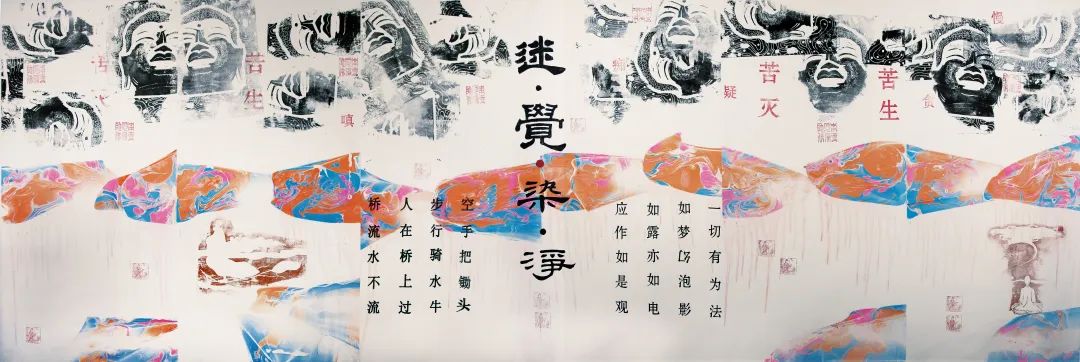 慢
贪
苦生
苦灭
疑
一切有为法
如梦幻泡影
如露亦如电
应作如是观
迷·覺·染·淨
空手把锄头
步行骑水牛
人在桥上过
桥流水不流
嗔
苦生